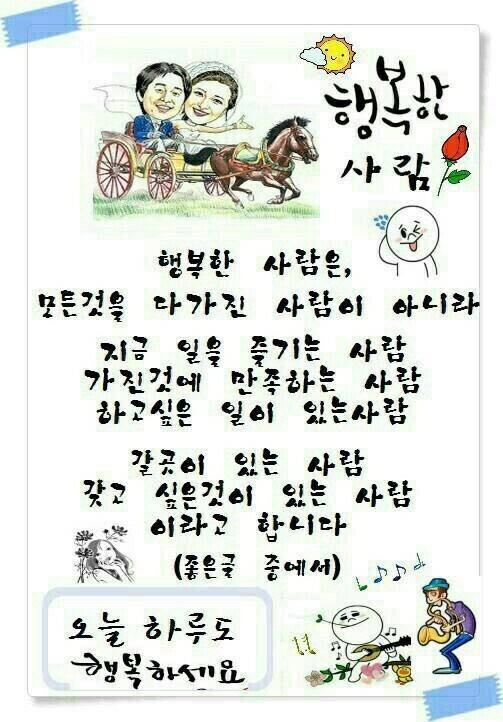 행복한
사람
행복한 사람은,
모든것을 다가진 사람이 아니라
지금 일을 즐기는 사람
가진것에 만족하는 사람
하고싶은 일이 있는사람
갈곳이 있는 사람
갖고 싶은것이 있는 사람
이라고 합니다
(좋은글 중에서)
오늘 하루도
행복하세요